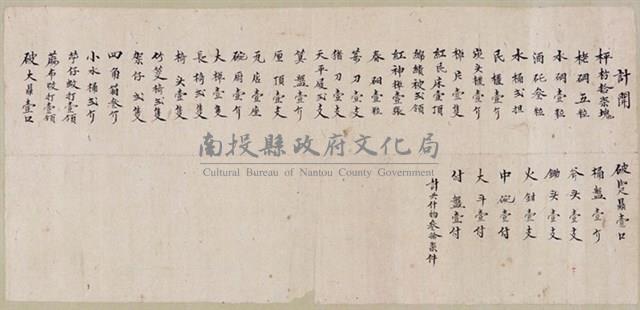 計開
枰柿拾柒塊
硘五粒
水硘壹粒
酒矸叁粒
水桶弍担
民櫃壹个
炭头櫃壹个
椑片壹隻
紅民床壹頂
綿績被弍領
紅神椑壹張
舂硘壹粒
菁刀壹支
猪刀壹支
天平尾弍支
算盤壹个
厘頂壹支
瓦店壹座
碗廚壹个
大椑壹隻
長椅弍隻
椅头壹隻
竹椅弍隻
架仔弍隻
四角箱叁个
小水桶弍个
苧仔蚊打壹領
蔴布蚊打壹領
破大鼎壹口
破鼎壹口
桶盤壹个
斧头壹支
鋤头壹支
火鉗壹支
中碗壹付
大斗壹付
付盤壹付
計共什物叁拾条件
南投縣政府文化局
Cultural Bureau of Nantou County Government